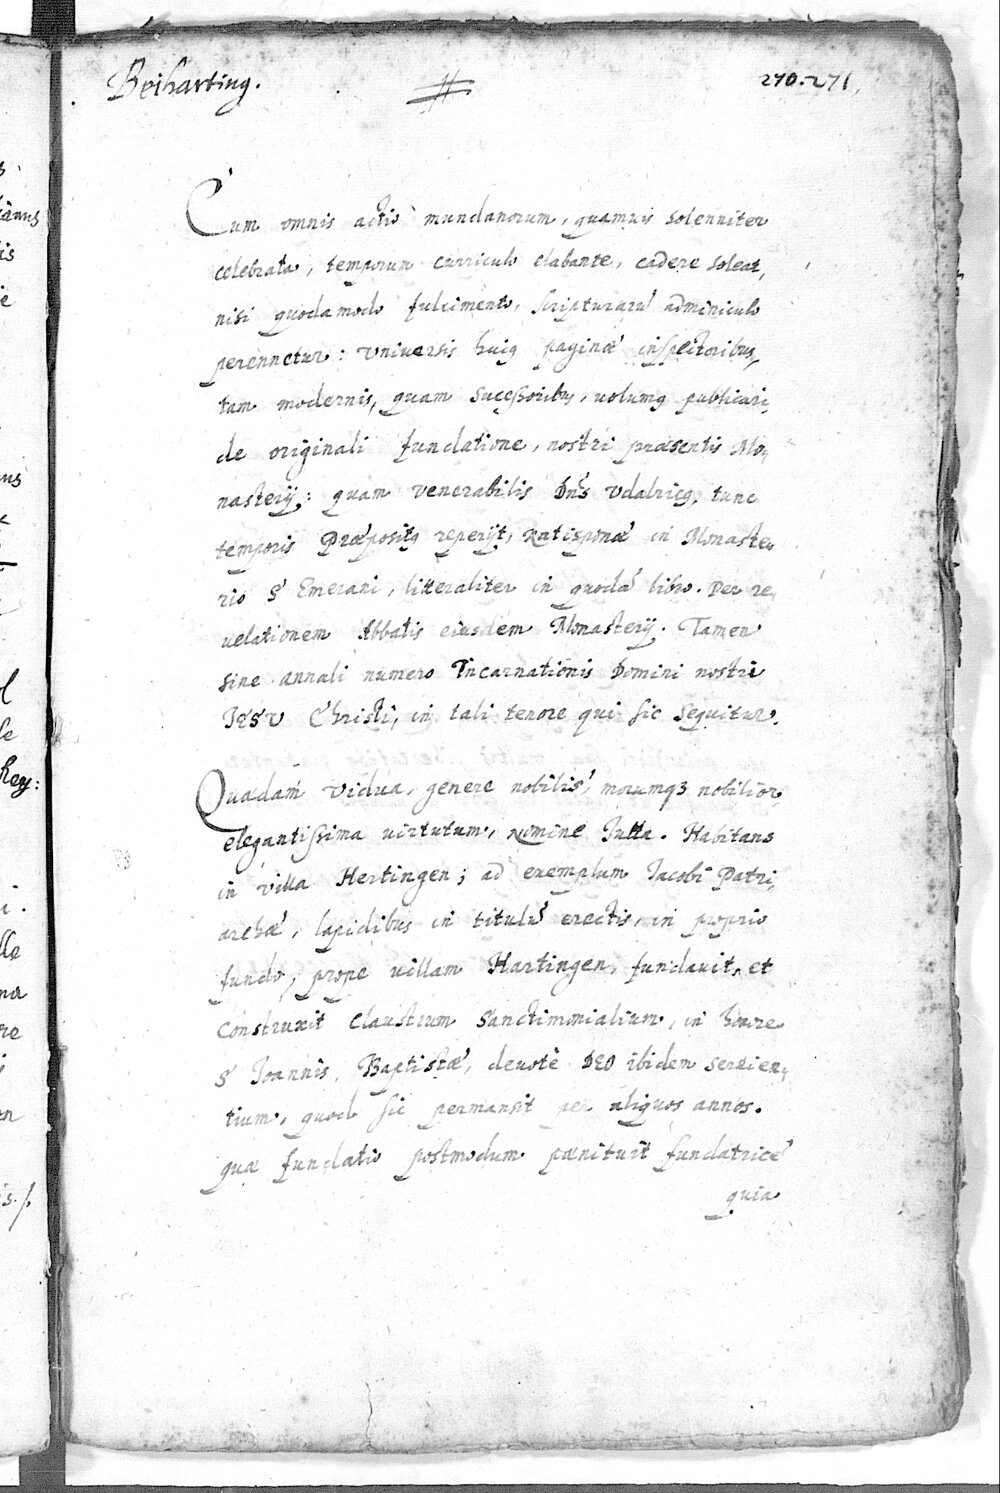 Beiharting.
270.271.
Cum omnis actio mundanorum, quamuis solenniter
celebrata, temporum curriculo elabante, cadere soleat,
nisi quodamodo fulcimento, scripturarū adminiculo
perennetur: vniuersis huiq paginæ inspectoribus,
tam modernis, quam sucessoribus, volumq publicari,
de originali fundatione, nostri præsentis Mo,
nasterij: quam venerabilis Dn̄s Vdalricq, tunc
temporis Præpositq reperijt, Ratisponæ in Monaste,
rio S Emerani, litteraliter in quodā libro. Per re,
uelationem Abbatis eiusdem Monasterij. Tamen
sine annali numero Incarnationis Domini nostri
Iesv Christi, in tali tenore qui sic sequitur.
Quædam vidua, genere nobilis, morumqз nobilior
elegantissima uirtutum, nomine Jutta. Habitans
in villa Hertingen; ad exemplum Jacobi Patri,
archæ, lapidibus in titulū erectis, in proprio
fundo, prope uillam Hartingen, fundauit, et
construxit Claustrum Sanctimonialium, in honore
S Joannis Baptistæ, deuotè DEO ibidem seruien,
tium, quod sic permansit per aliquos annos.
quæ fundatio postmodum pænituit fundatricē
quia